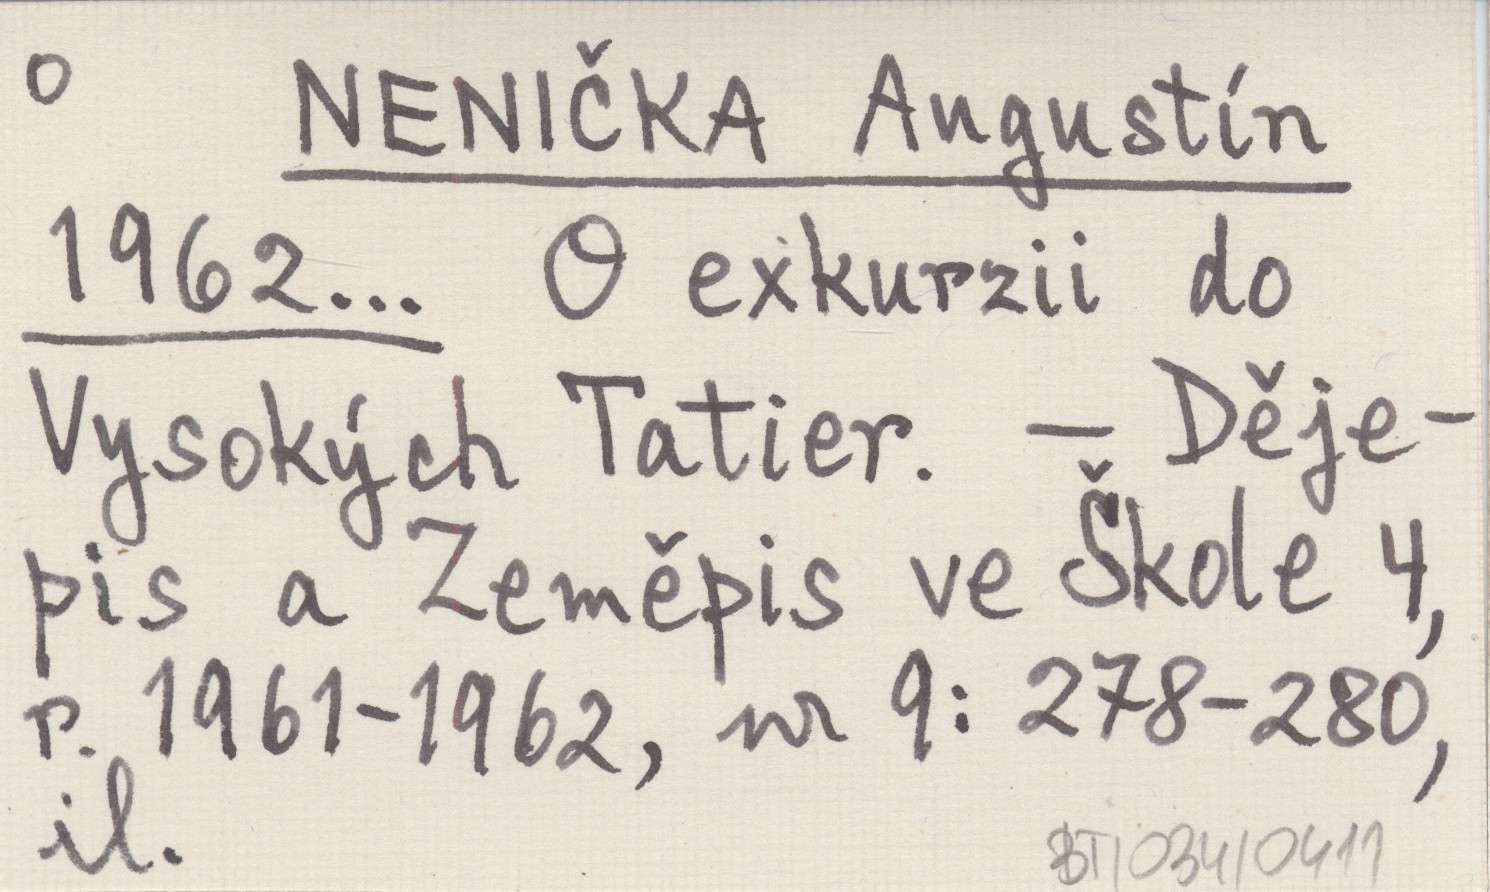 O NENIČKA Augustín
1962... O exkurzii do
Vysokých Tatier. – Děje-
pis a Zeměpis ve Škole 4,
r. 1961-1962, nr 9: 278-280,
il.
BT/034/0411